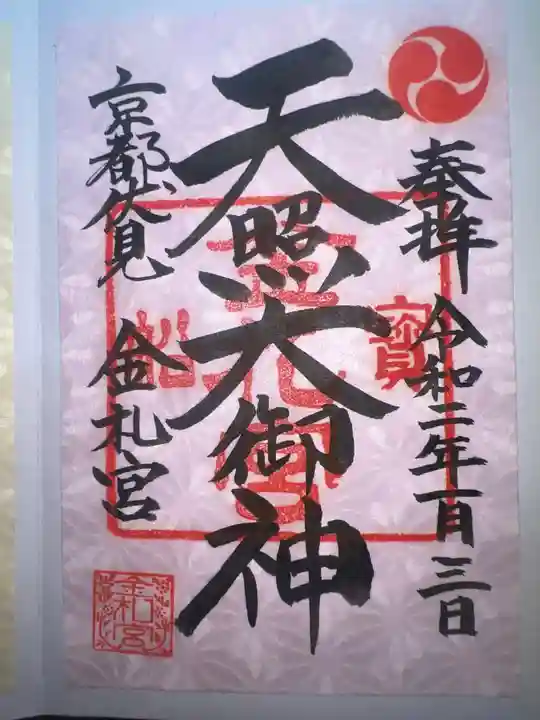 奉拝 令和二年一月三日
天照大御神
京都伏見 金札宮
寳
金札宮